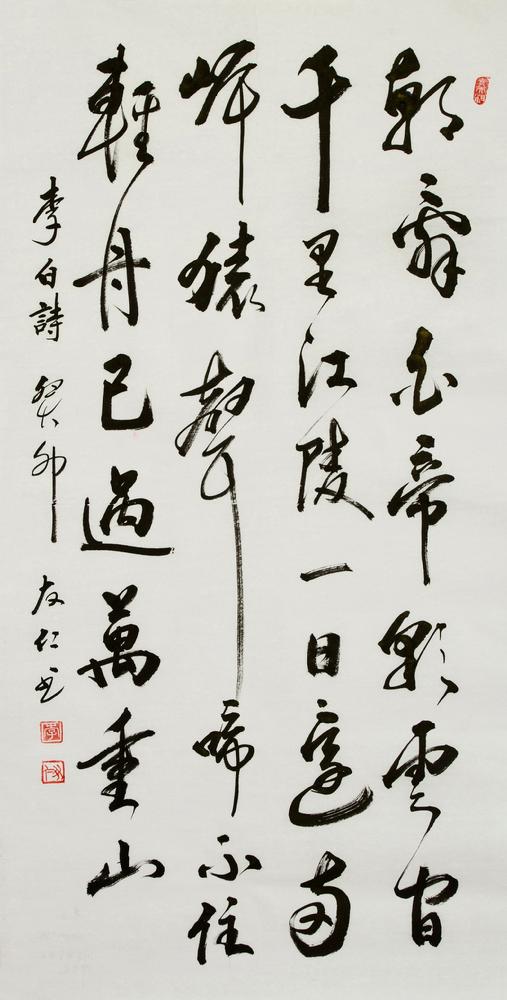 朝辭白帝彩雲間
千里江陵一日還兩
岸猿聲啼不住
輕舟已過萬重山
李白詩 癸卯 友仁書